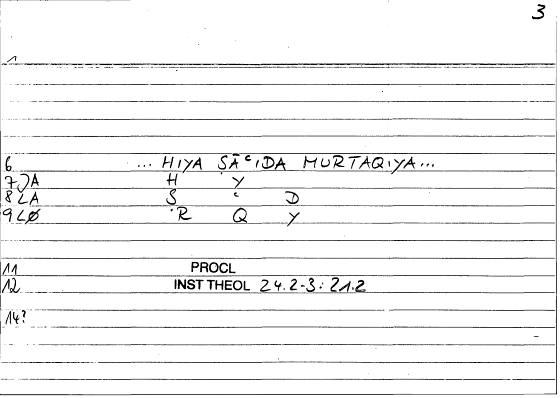 3
1
6 ... HIYA ṢĀʿIDA MURTAQIYA...
7 JA H Y
8 LA Ṣ ʿ D
9 LØ R Q Y
11 PROCL
12 INST THEOL 24.2-3: 21.2
14?